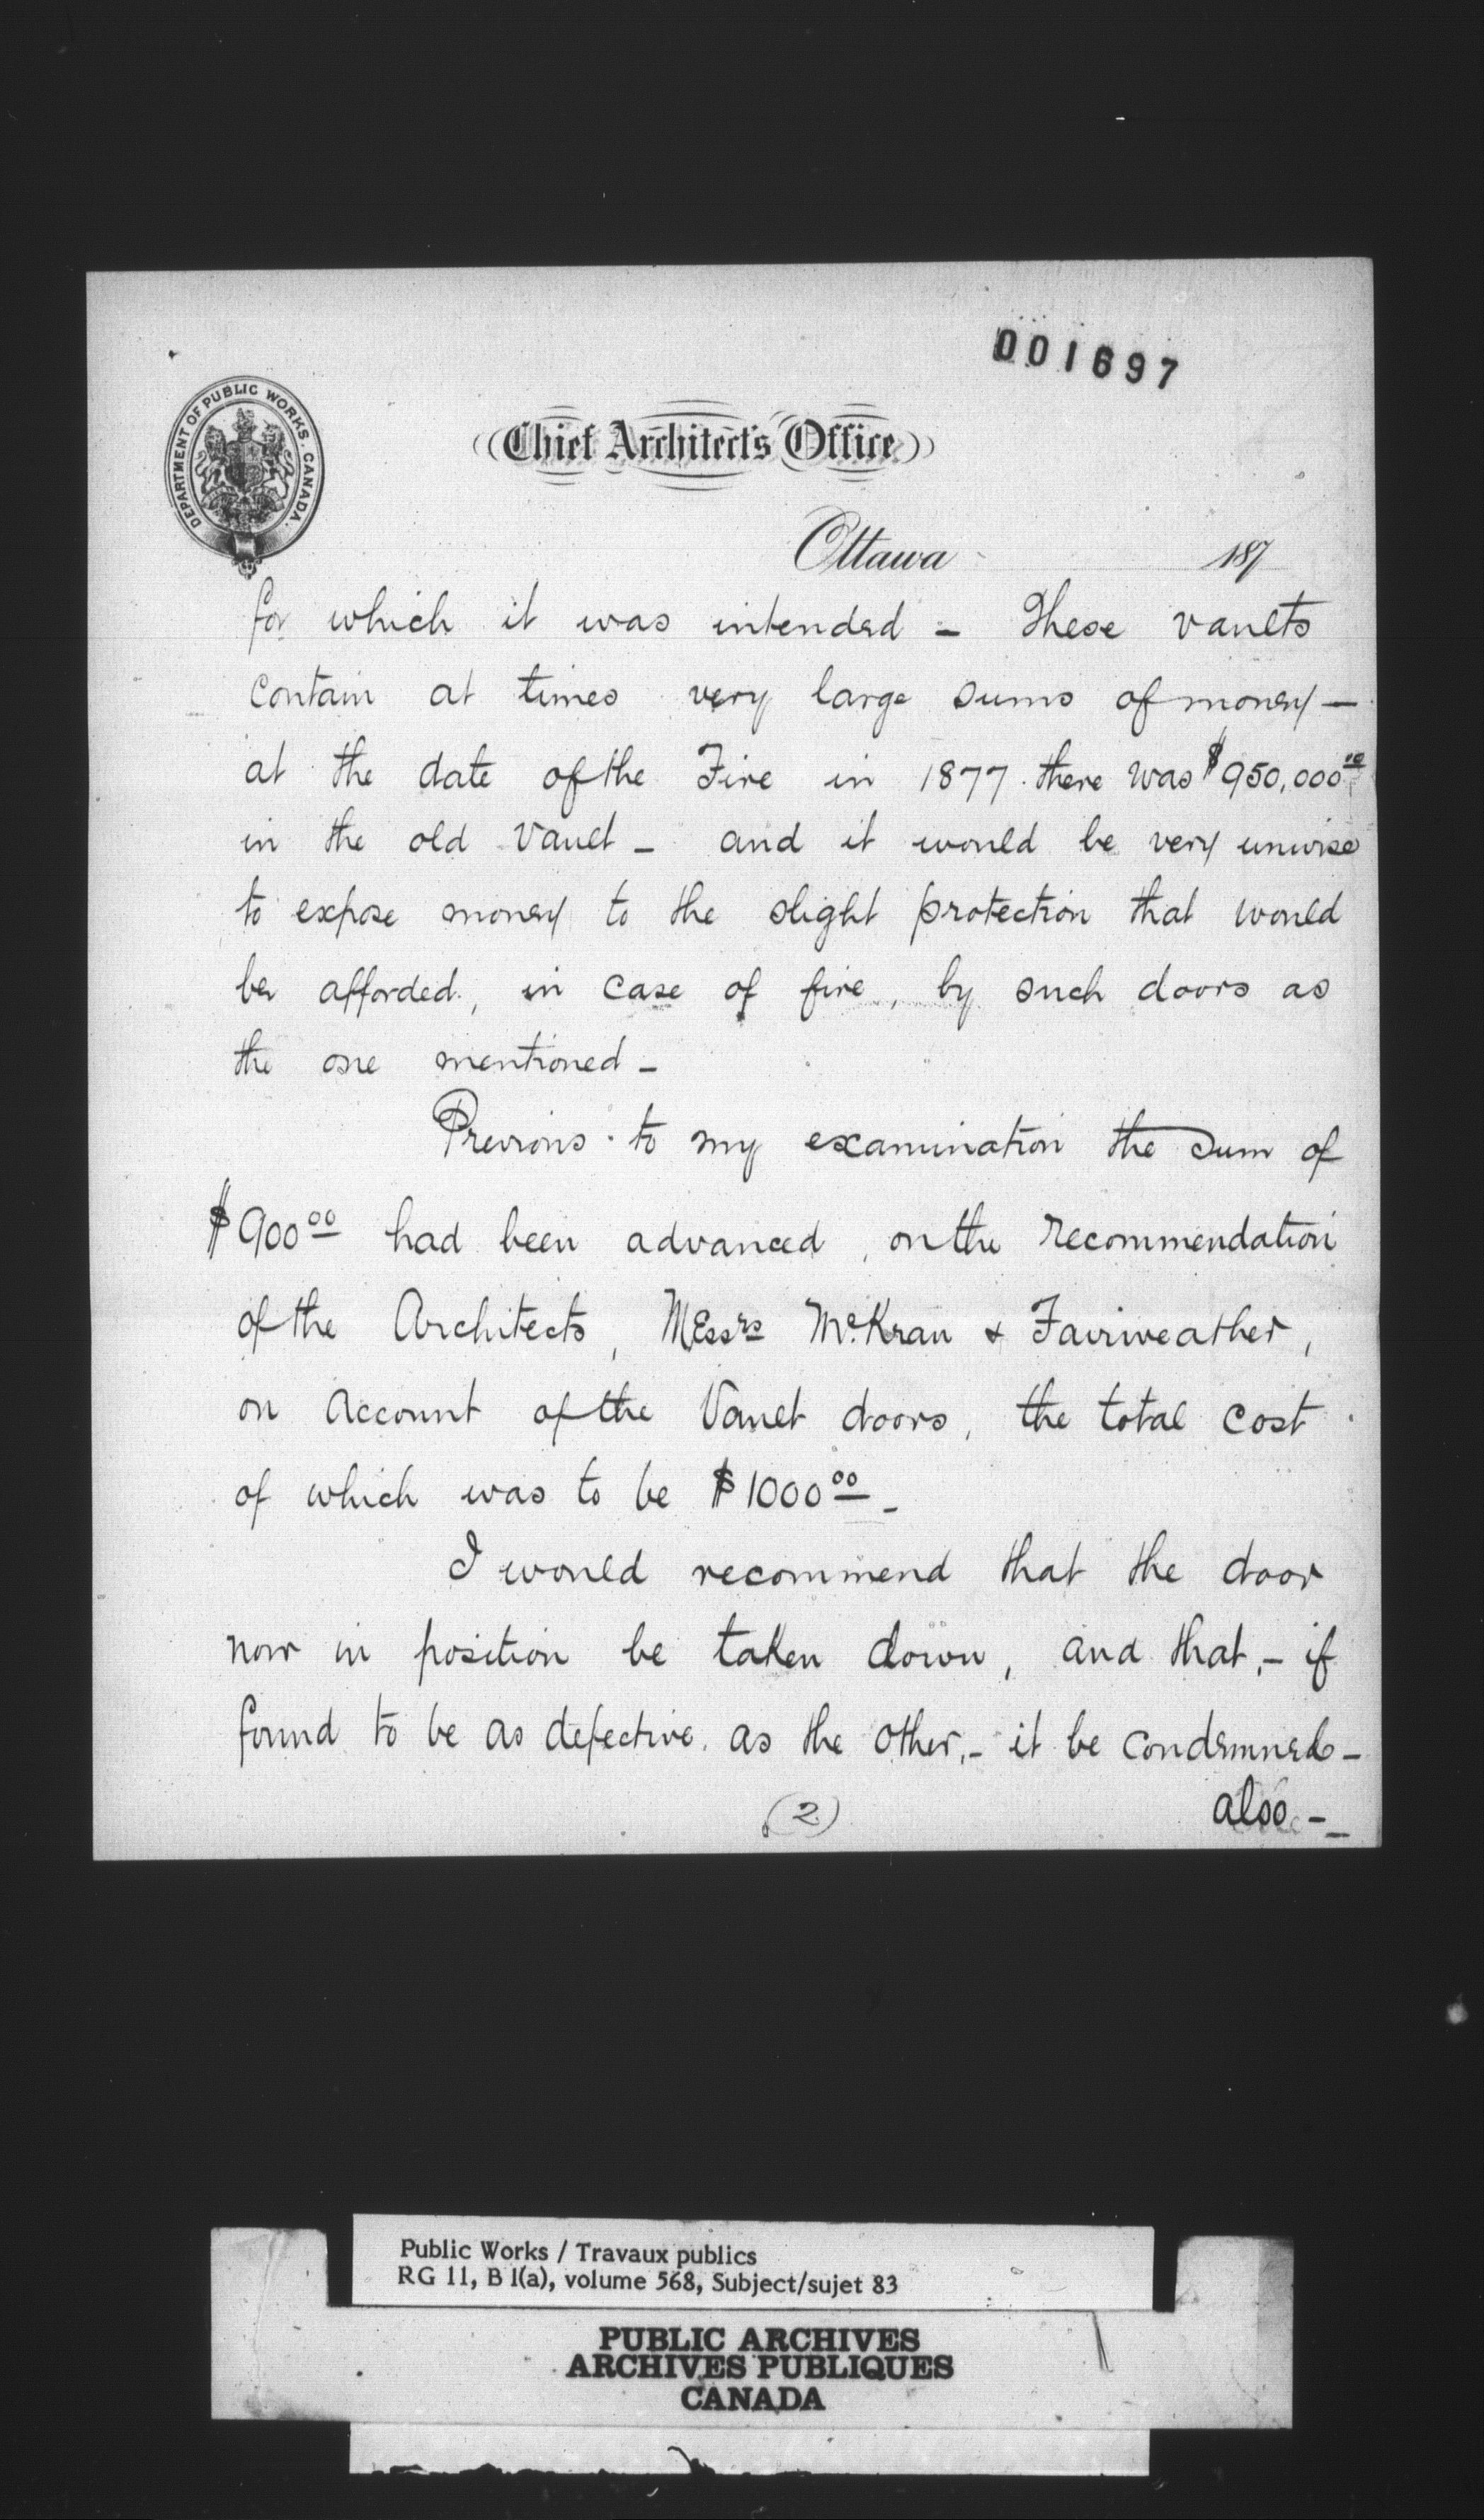 001697
DEPARTMENT OF PUBLIC WORKS. CANADA.
Chief Architect's Office
Ottawa 187
for which it was intended - These vaults
contain at times very large sums of money -
at the date of the Fire in 1877 there was $950,000.00
in the old Vault - and it would be very unwise
to expose money to the slight protection that would
be afforded, in case of fire, by such doors as
the one mentioned -
Previous to my examination the sum of
$900.00 had been advanced, on the recommendation
of the Architects, Messrs McKean & Fairweather,
on account of the Vault doors, the total cost
of which was to be $1000.00 -
I would recommend that the door
now in position be taken down, and that, - if
found to be as defective as the other, - it be condemned -
(2)
also -
Public Works / Travaux publics
RG 11, B 1(a), volume 568, Subject/sujet 83
PUBLIC ARCHIVES
ARCHIVES PUBLIQUES
CANADA